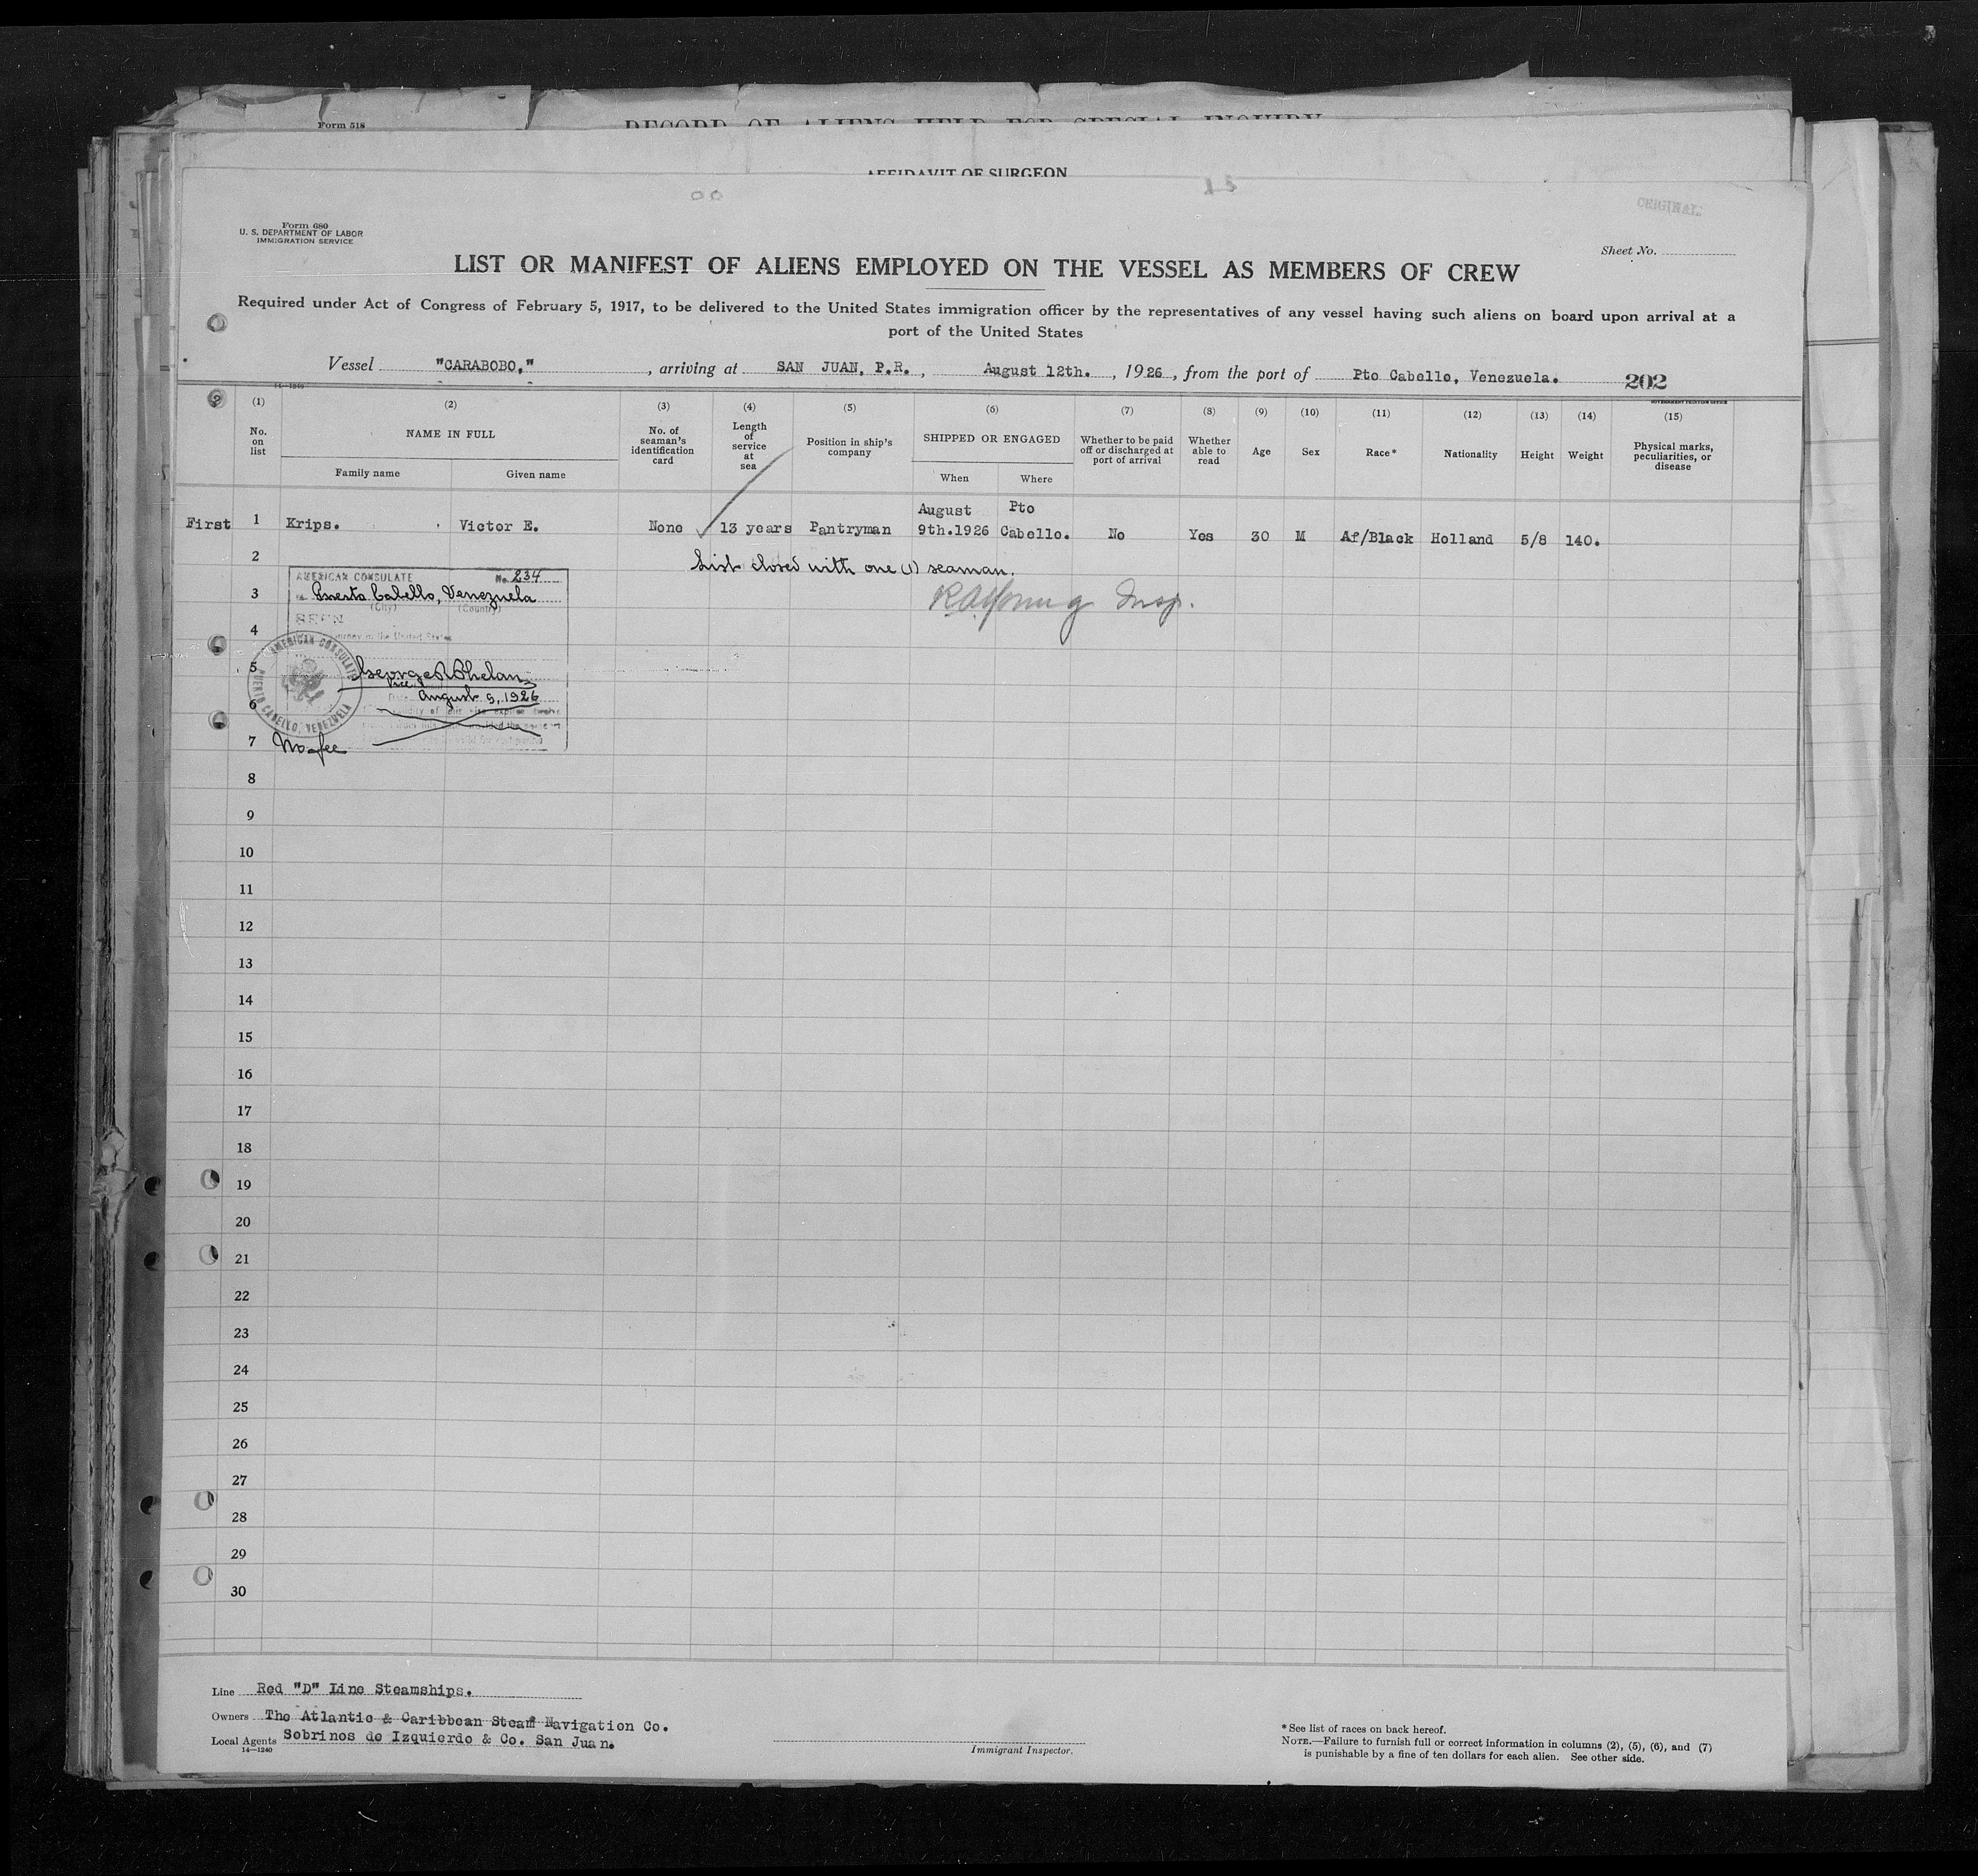 Form 518
RECORD OF ALIENS HELD FOR SPECIAL INQUIRY
AFFIDAVIT OF SURGEON
ORIGINAL
Form 680
U. S. DEPARTMENT OF LABOR
IMMIGRATION SERVICE
Sheet No.
LIST OR MANIFEST OF ALIENS EMPLOYED ON THE VESSEL AS MEMBERS OF CREW
Required under Act of Congress of February 5, 1917, to be delivered to the United States immigration officer by the representatives of any vessel having such aliens on board upon arrival at a
port of the United States
Vessel "CARABOBO," , arriving at SAN JUAN, P.R. , August 12th. , 1926 , from the port of Pto Cabello, Venezuela. 202
14—1240
GOVERNMENT PRINTING OFFICE
(1) (2) (3) (4) (5) (6) (7) (8) (9) (10) (11) (12) (13) (14) (15)
No. on list
NAME IN FULL
Family name
Given name
No. of seaman's identification card
Length of service at sea
Position in ship's company
SHIPPED OR ENGAGED
When
Where
Whether to be paid off or discharged at port of arrival
Whether able to read
Age
Sex
Race*
Nationality
Height
Weight
Physical marks, peculiarities, or disease
First 1 Krips. Victor E. None 13 years Pantryman August 9th.1926 Pto Cabello. No Yes 30 M Af/Black Holland 5/8 140.
2
List closed with one (1) seaman.
AMERICAN CONSULATE No. 234
3
Puerto Cabello, Venezuela
(City) (Country)
RAYoung Insp.
SEEN
4
journey to the United States
AMERICAN CONSULATE
PUERTO CABELLO, VENEZUELA
5
George R Phelan
Vice
Date August 9, 1926
6
validity of this visa expires twelve
7
No fee
8
9
10
11
12
13
14
15
16
17
18
19
20
21
22
23
24
25
26
27
28
29
30
Line Red "D" Line Steamships.
Owners The Atlantic & Caribbean Steam Navigation Co.
Local Agents Sobrinos de Izquierdo & Co. San Juan.
14—1240
Immigrant Inspector.
* See list of races on back hereof.
NOTE.—Failure to furnish full or correct information in columns (2), (5), (6), and (7)
is punishable by a fine of ten dollars for each alien. See other side.